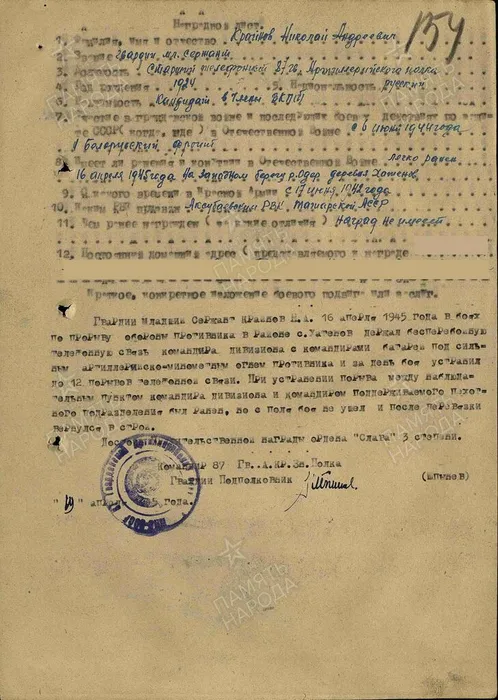 154
Наградной лист.
1. Фамилия, имя и отчество Крайнов, Николай Андреевич
2. Звание Гвардии мл. сержант
3. Старший телефонист 87 гв. полка
4. Год рождения 1924 5. Национальность русский
6. Партийность Кандидат в члены ВКП(б)
7. Участие в гражданской войне и последующих боевых действиях по защите СССР (когда, где) в Отечественной Войне с 6 июня 1944 года
1 Белорусский фронт
8. Имеет ли ранения и контузии в Отечественной Войне легко ранен
16 апреля 1945 года на западном берегу р. Одер деревня
9. С какого времени в Красной Армии с 17 июня 1942 года
10. Каким РВК призван Аксубаевским РВК Татарской АССР
11. Чем ранее награжден (за какие отличия) наград не имеет
12. Постоянный домашний адрес (представляемого к награде
Краткое, конкретное изложение боевого подвига или заслуг.
Гвардии младший сержант Крайнов Н.А. 16 апреля 1945 года в боях
по прорыву обороны противника в районе с. Хатенов держал бесперебойную
телефонную связь командира дивизиона с командирами батарей под силь-
ным артиллерийско-минометным огнем противника и за день боя устранил
до 12 порывов телефонной связи. При устранении порыва между наблюда-
тельным пунктом командира дивизиона и командиром поддерживаемого пехот-
ного подразделения был ранен, но с поля боя не ушел и после перевязки
вернулся в строй.
Достоин правительственной награды ордена "Слава" 3 степени.
Командир 87 Гв.А.Кр.Зн.Полка
Гвардии Подполковник (Шпынев)
"19" апреля 5 года.
ПАМЯТЬ
НАРОДА